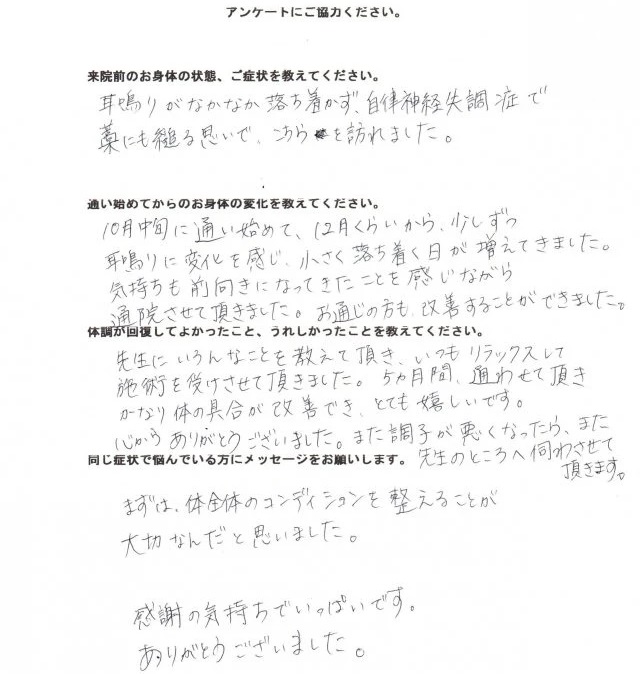 アンケートにご協力ください。
来院前のお身体の状態、ご症状を教えてください。
耳鳴りがなかなか落ち着かず、自律神経失調症で
藁にも縋る思いで、こちらを訪れました。
通い始めてからのお身体の変化を教えてください。
10月中旬に通い始めて、12月くらいから、少しずつ
耳鳴りに変化を感じ、小さく落ち着く日が増えてきました。
気持ちも前向きになってきたことを感じながら
通院させて頂きました。お通じの方も、改善することができました。
体調が回復してよかったこと、うれしかったことを教えてください。
先生にいろんなことを教えて頂き、いつもリラックスして
施術を受けさせて頂きました。5ヵ月間、通わせて頂き
かなり体の具合が改善でき、とても嬉しいです。
心からありがとうございました。また調子が悪くなったら、また
同じ症状で悩んでいる方にメッセージをお願いします。
先生のところへ伺わさせて
頂きます。
まずは、体全体のコンディションを整えることが
大切なんだと思いました。
感謝の気持ちでいっぱいです。
ありがとうございました。